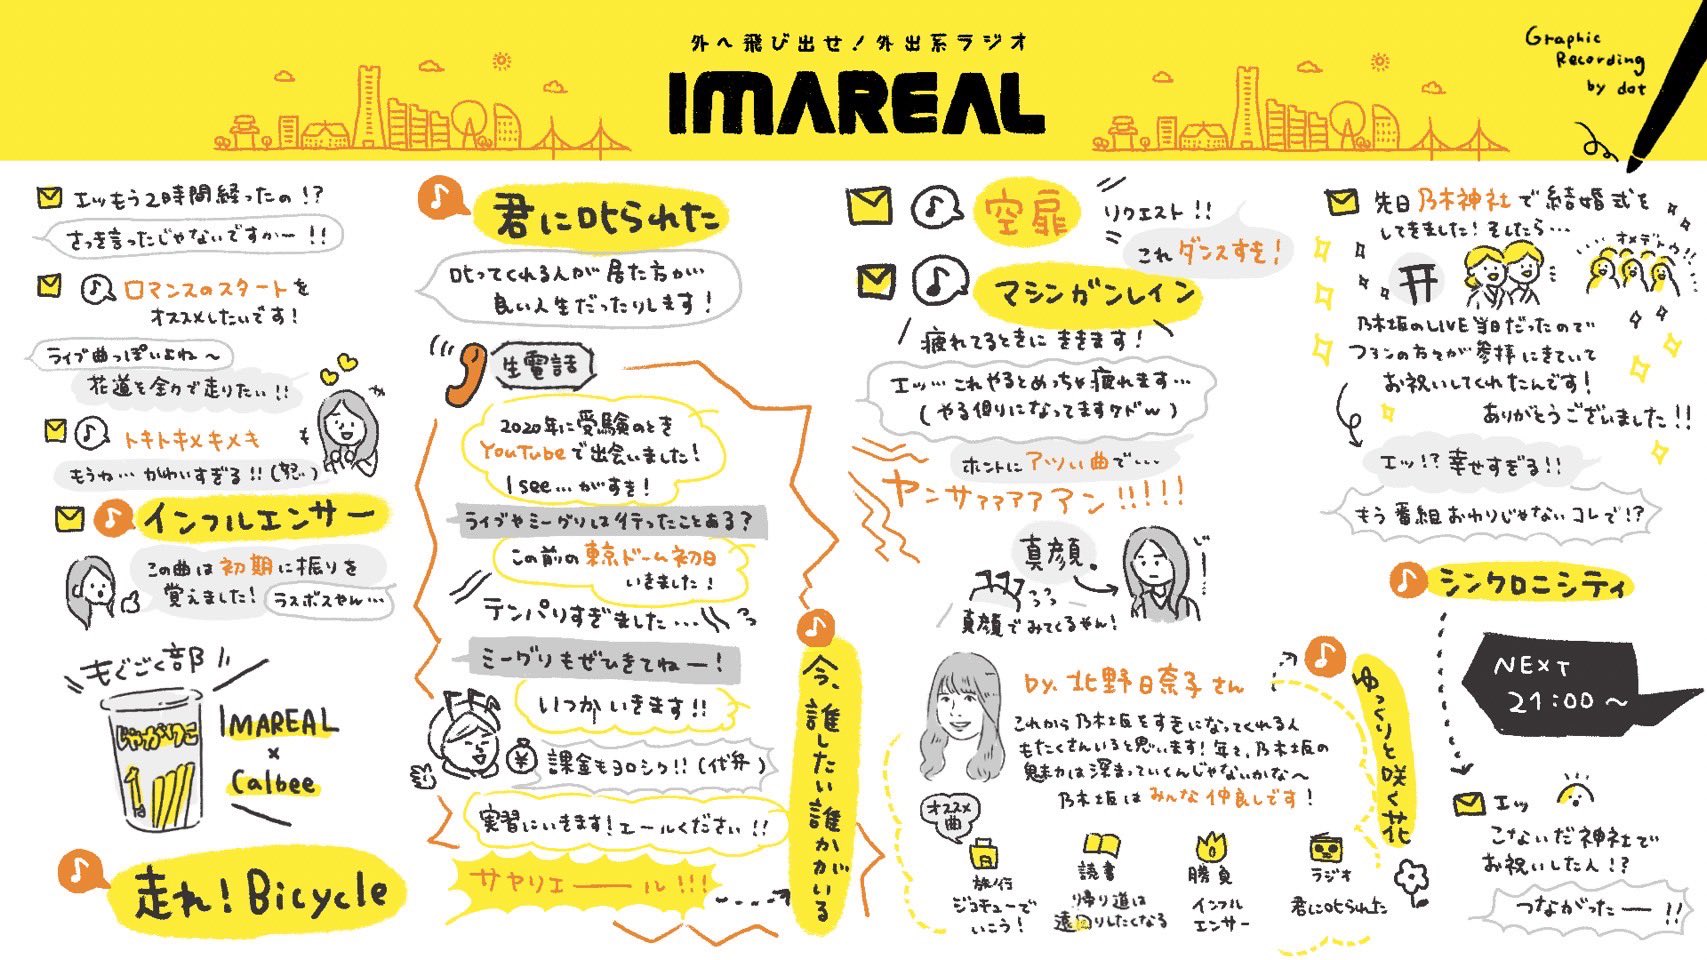 外へ飛び出せ!外出系ラジオ
IMAREAL
Graphic
Recording
by dot
エッもう2時間経ったの!?
さっき言ったじゃないですか〜!!
ロマンスのスタートを
オススメしたいです!
ライブ曲っぽいよね〜
花道を全力で走りたい!!
トキトキメキメキ
もうね…かわいすぎる!!(怒)
インフルエンサー
この曲は初期に振りを
覚えました!
ラスボスやん…
もぐごく部
じゃがりこ
IMAREAL
×
Calbee
走れ!Bicycle
君に叱られた
叱ってくれる人が居た方が
良い人生だったりします!
生電話
2020年に受験のとき
YouTubeで出会いました!
I see…がすき!
ライブやミーグリは行ったことある?
この前の東京ドーム初日
いきました!
テンパりすぎました…
ミーグリもぜひきてねー!
いつかいきます!!
課金もヨロシク!!(代弁)
実習にいきます!エールください!!
サヤリエーール!!!
今、誰したい誰かがいる
空扉
リクエスト!!
これダンスすき!
マシンガンレイン
疲れてるときにききます!
エッ…これやるとめっちゃ疲れます…
(やる側りになってますケドw)
ホントにアツい曲で…
ヤンサァァァァアン!!!!!
真顔。
真顔でみてくるやん!
by.北野日奈子さん
これから乃木坂をすきになってくれる人
もたくさんいると思います!年々、乃木坂の
魅力は深まっていくんじゃないかな〜
乃木坂はみんな仲良しです!
オススメ
曲
旅行
ジコチューで
いこう!
読書
帰り道は
遠回りしたくなる
勝負
インフル
エンサー
ラジオ
君に叱られた
ゆっくりと咲く花
先日乃木神社で結婚式を
してきました!そしたら…
オメデトウ!!
乃木坂のLIVE当日だったので
ファンの方々が参拝にきていて
お祝いしてくれたんです!
ありがとうございました!!
エッ!?幸せすぎる!!
もう番組おわりじゃないコレで!?
シンクロニシティ
NEXT
21:00〜
エッ
こないだ神社で
お祝いした人!?
つながったー!!